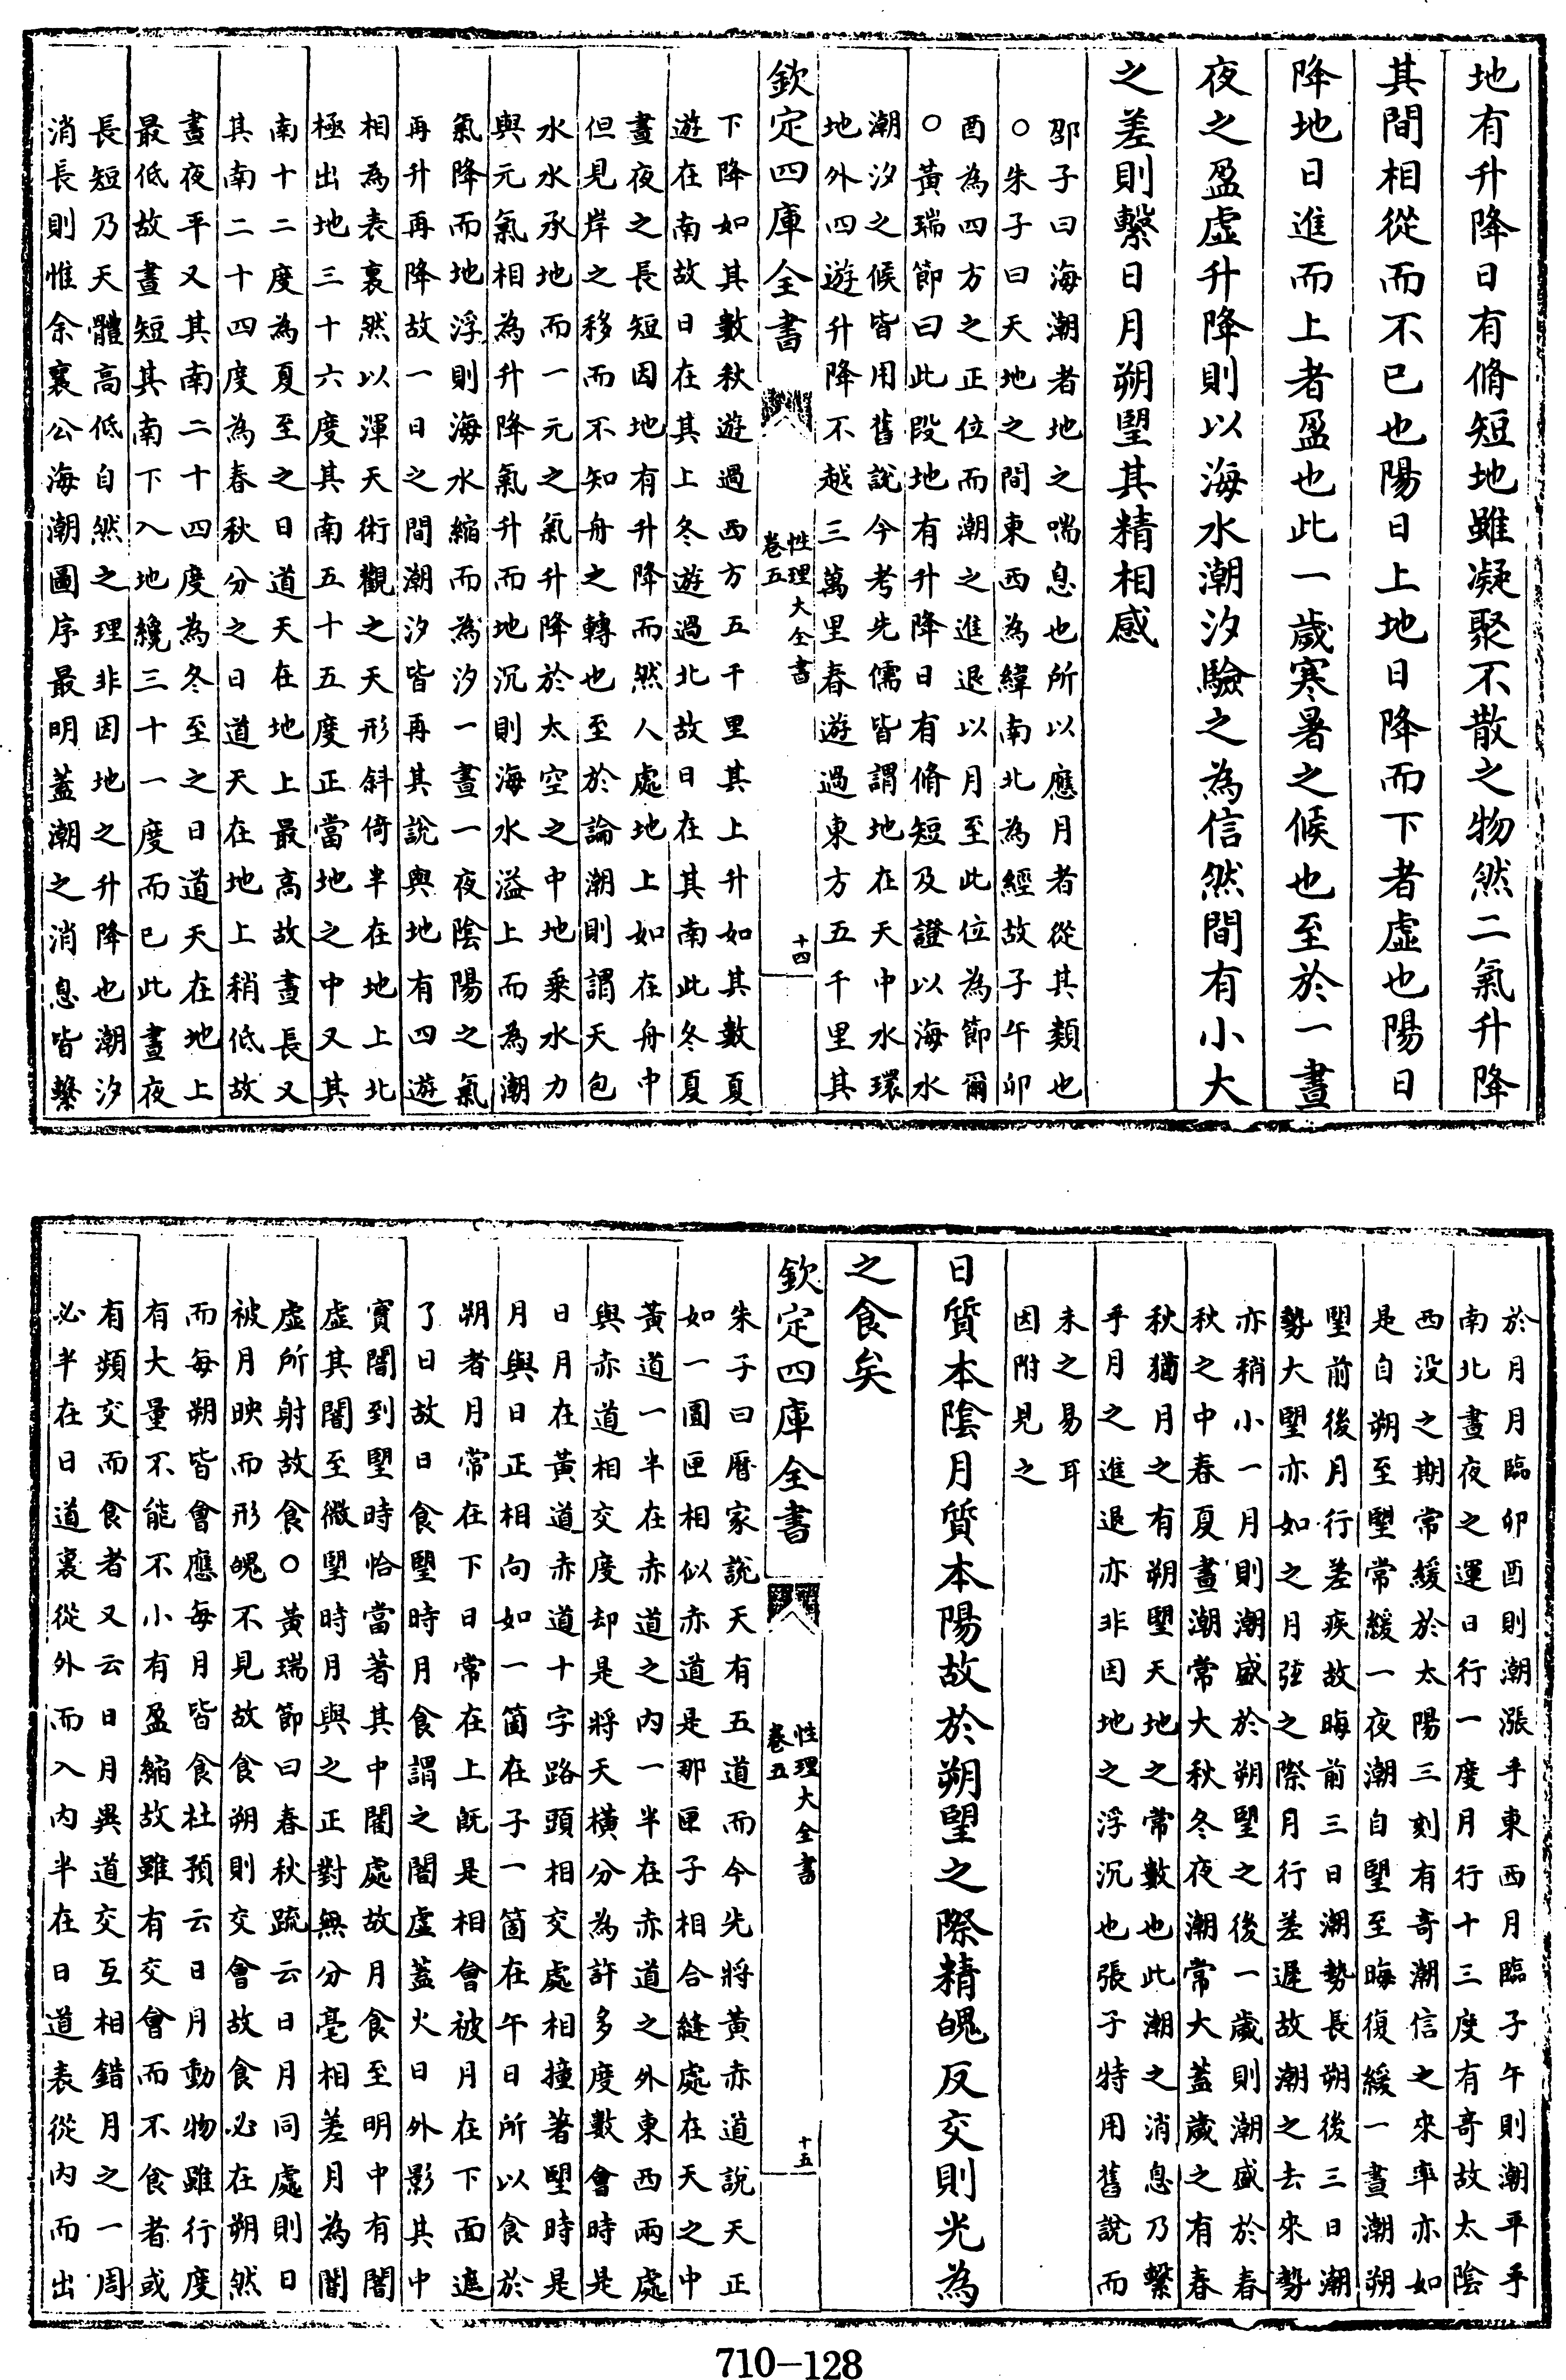 地有升降日有脩短地雖凝聚不散之物然二氣升降
其間相從而不已也陽日上地日降而下者虛也陽日
降地日進而上者盈也此一歲寒暑之候也至於一晝
夜之盈虛升降則以海水潮汐驗之為信然間有小大
之差則繫日月朔朢其精相感
邵子曰海潮者地之喘息也所以應月者從其類也
○朱子曰天地之間東西為緯南北為經故子午卯
酉為四方之正位而潮之進退以月至此位為節爾
○黃瑞節曰此段地有升降日有脩短及證以海水
潮汐之候皆用舊說今考先儒皆謂地在天中水環
地外四遊升降不越三萬里春遊過東方五千里其
欽定四庫全書
性理大全書
卷五
十四
下降如其數秋遊過西方五千里其上升如其數夏
遊在南故日在其上冬遊過北故日在其南此冬夏
晝夜之長短因地有升降而然人處地上如在舟中
但見岸之移而不知舟之轉也至於論潮則謂天包
水水承地而一元之氣升降於太空之中地乗水力
與元氣相為升降氣升而地沉則海水溢上而為潮
氣降而地浮則海水縮而為汐一晝一夜陰陽之氣
再升再降故一日之間潮汐皆再其說與地有四遊
相為表裏然以渾天術觀之天形斜倚半在地上北
極出地三十六度其南五十五度正當地之中又其
南十二度為夏至之日道天在地上最高故晝長又
其南二十四度為春秋分之日道天在地上稍低故
晝夜平又其南二十四度為冬至之日道天在地上
最低故晝短其南下入地纔三十一度而已此晝夜
長短乃天體高低自然之理非因地之升降也潮汐
消長則惟余襄公海潮圖序最明蓋潮之消息皆繫
於月月臨卯酉則潮漲乎東西月臨子午則潮平乎
南北晝夜之運日行一度月行十三度有奇故太陰
西没之期常緩於太陽三刻有奇潮信之來率亦如
是自朔至朢常緩一夜潮自朢至晦復緩一晝潮朔
朢前後月行差疾故晦前三日潮勢長朔後三日潮
勢大朢亦如之月弦之際月行差遲故潮之去來勢
亦稍小一月則潮盛於朔朢之後一歲則潮盛於春
秋之中春夏晝潮常大秋冬夜潮常大蓋歲之有春
秋猶月之有朔朢天地之常數也此潮之消息乃繫
乎月之進退亦非因地之浮沉也張子特用舊說而
未之易耳
因附見之
日質本陰月質本陽故於朔朢之際精魄反交則光為
之食矣
欽定四庫全書
性理大全書
卷五
十五
朱子曰曆家說天有五道而今先將黃赤道說天正
如一圓匣相似赤道是那匣子相合縫處在天之中
黃道一半在赤道之內一半在赤道之外東西兩處
與赤道相交度却是將天橫分為許多度數會時是
日月在黃道赤道十字路頭相交處相撞著朢時是
月與日正相向如一箇在子一箇在午日所以食於
朔者月常在下日常在上既是相會被月在下面遮
了日故日食朢時月食謂之闇虛蓋火日外影其中
實闇到朢時恰當著其中闇處故月食至明中有闇
虛其闇至微朢時月與之正對無分毫相差月為闇
虛所射故食○黃瑞節曰春秋疏云日月同處則日
被月映而形魄不見故食朔則交會故食必在朔然
而每朔皆會應每月皆食杜預云日月動物雖行度
有大量不能不小有盈縮故雖有交會而不食者或
有頻交而食者又云日月異道交互相錯月之一周
必半在日道裏從外而入內半在日道表從內而出
710-128